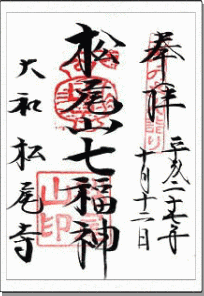 奉拝
平成二十七年
十月十二日
松尾山七福神
大和松尾寺